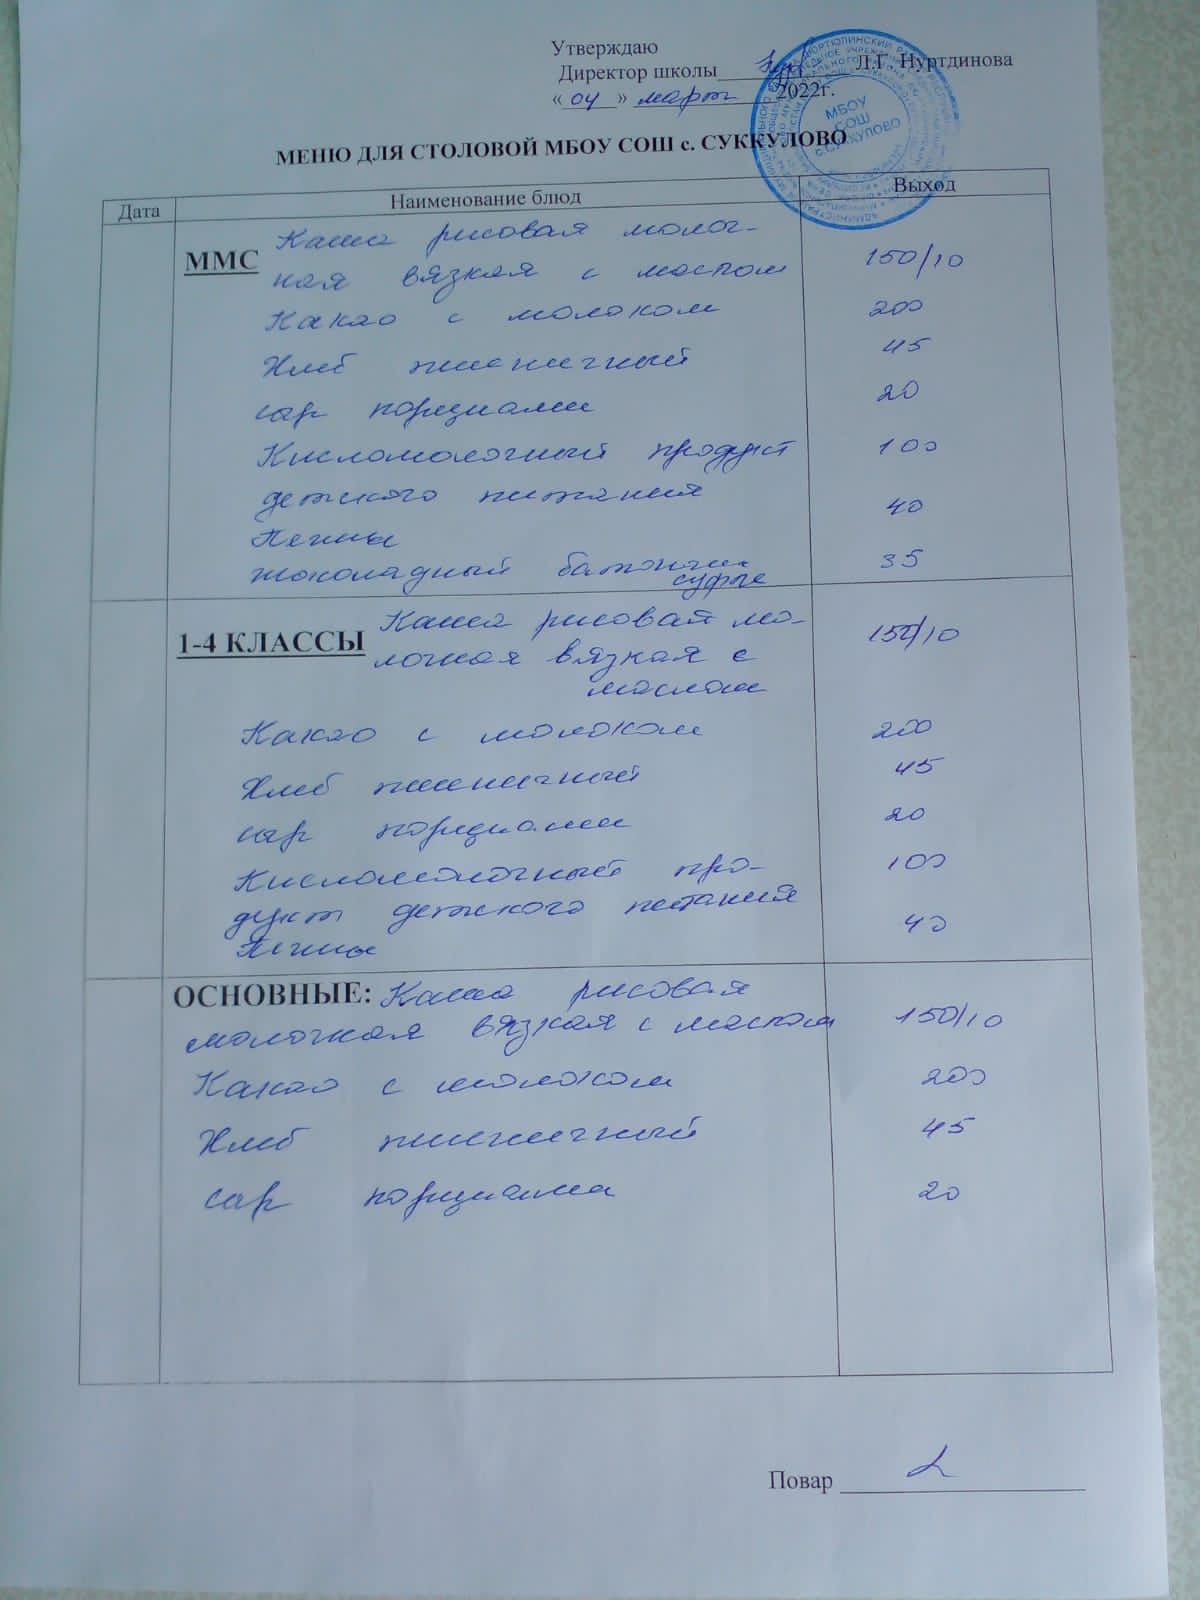 Утверждаю
Директор школы Л.Г. Нуртдинова
« 04 » март 2022г.
МБОУ
СОШ
с.СУККУЛОВО
МЕНЮ ДЛЯ СТОЛОВОЙ МБОУ СОШ с. СУККУЛОВО
Дата Наименование блюд Выход
ММС Каша рисовая молоч-
ная вязкая с маслом 150/10
Какао с молоком 200
Хлеб пшеничный 45
сыр порциями 20
Кисломолочный продукт 100
детского питания
Печенье 40
шоколадный батончик 35
суфле
1-4 КЛАССЫ Каша рисовая мо- 150/10
лочная вязкая с
маслом
Какао с молоком 200
Хлеб пшеничный 45
сыр порциями 20
Кисломолочный про- 100
дукт детского питания
Печенье 40
ОСНОВНЫЕ: Каша рисовая
молочная вязкая с маслом 150/10
Какао с молоком 200
Хлеб пшеничный 45
сыр порциями 20
Повар